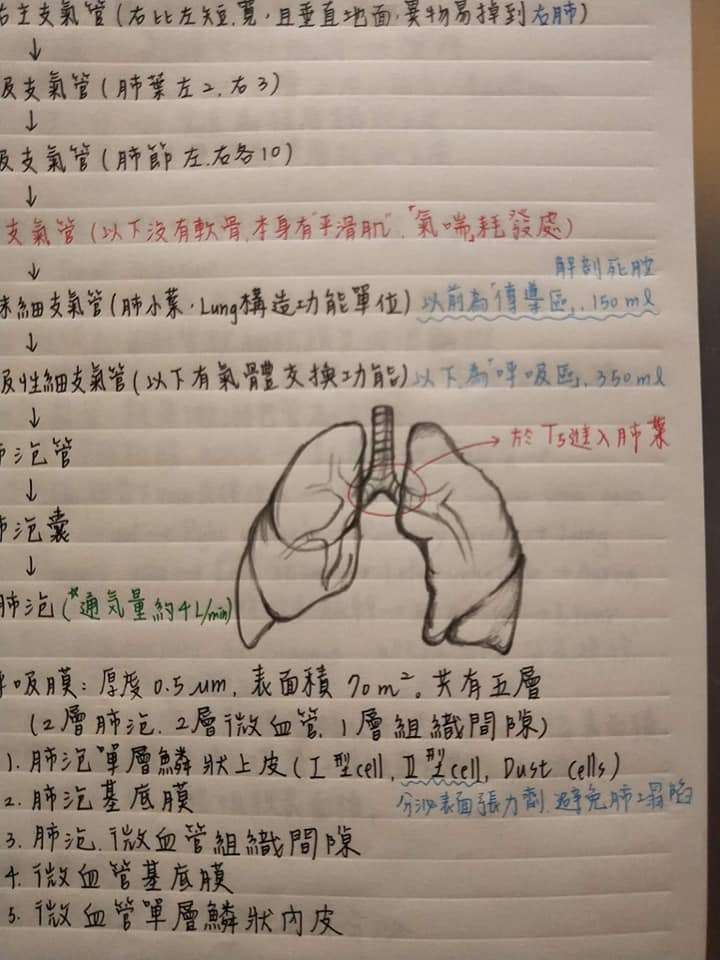 右主支氣管(右比左短.寬,且垂直地面,異物易掉到右肺)
↓
及支氣管(肺葉左2,右3)
↓
及支氣管(肺節 左.右各10)
↓
支氣管(以下沒有軟骨,本身有"平滑肌",「氣喘」好發處)
↓
解剖死腔
末細支氣管(肺小葉.Lung構造功能單位)以前為「傳導區」,150ml
↓
吸性細支氣管(以下有氣體交換功能)以下為「呼吸區」,350ml
↓
肺泡管
↓
肺泡囊
↓
肺泡(*通氣量約4L/min)
於T5進入肺葉
呼吸膜:厚度0.5μm,表面積70m²。共有五層
(2層肺泡.2層微血管.1層組織間隙)
1.肺泡單層鱗狀上皮(I型cell,II型cell,Dust cells)
分泌表面張力劑,避免肺塌陷
2.肺泡基底膜
3.肺泡.微血管組織間隙
4.微血管基底膜
5.微血管單層鱗狀內皮